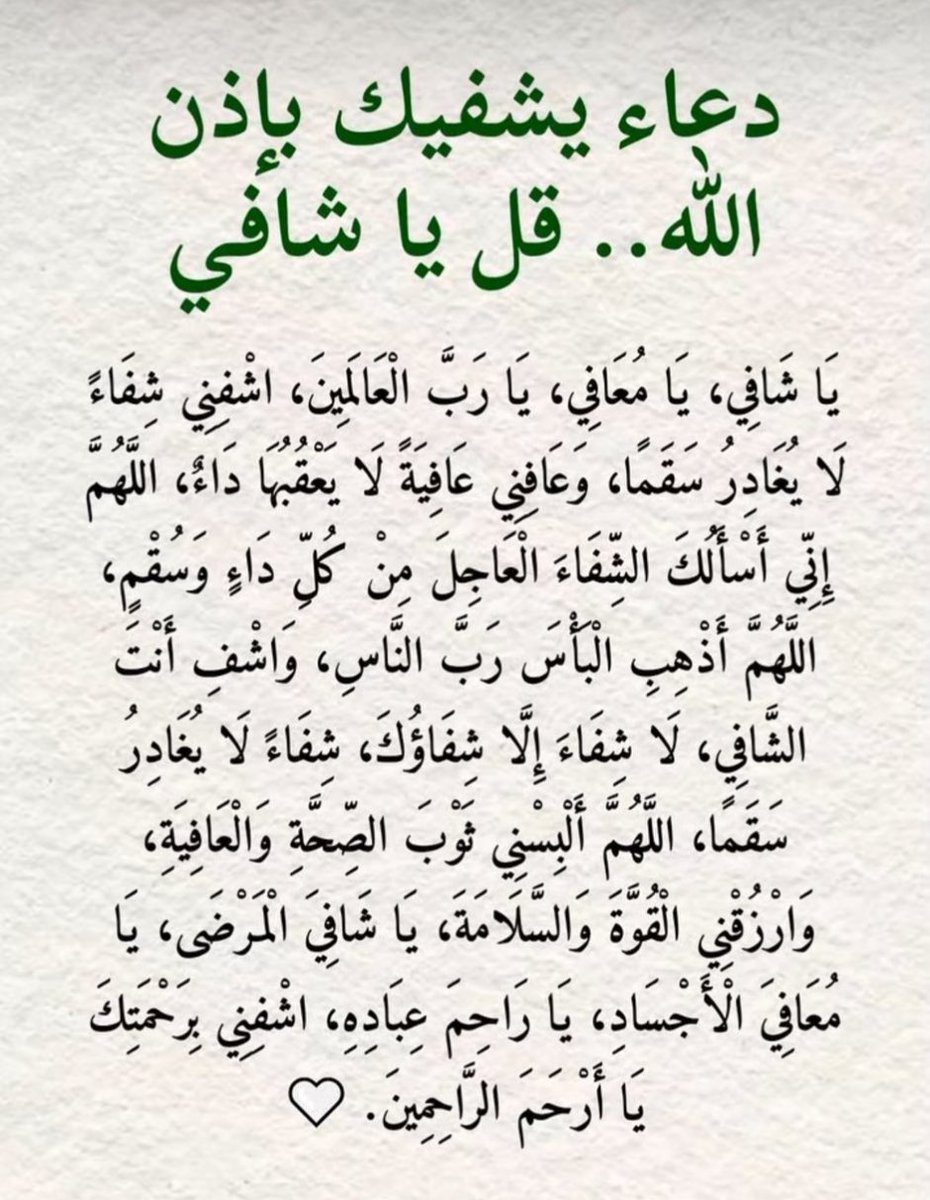 دعاء يشفيك بإذن
الله.. قل يا شافي
يَا شَافِي، يَا مُعَافِي، يَا رَبَّ الْعَالَمِينَ، اشْفِنِي شِفَاءً
لَا يُغَادِرُ سَقَمًا، وَعَافِنِي عَافِيَةً لَا يَعْقُبُهَا دَاءٌ، اللَّهُمَّ
إِنِّي أَسْأَلُكَ الشِّفَاءَ الْعَاجِلَ مِنْ كُلِّ دَاءٍ وَسُقْمٍ،
اللَّهُمَّ أَذْهِبِ الْبَأْسَ رَبَّ النَّاسِ، وَاشْفِ أَنْتَ
الشَّافِي، لَا شِفَاءَ إِلَّا شِفَاؤُكَ، شِفَاءً لَا يُغَادِرُ
سَقَمًا، اللَّهُمَّ أَلْبِسْنِي ثَوْبَ الصِّحَّةِ وَالْعَافِيَةِ،
وَارْزُقْنِي الْقُوَّةَ وَالسَّلَامَةَ، يَا شَافِيَ الْمَرْضَى، يَا
مُعَافِيَ الْأَجْسَادِ، يَا رَاحِمَ عِبَادِهِ، اشْفِنِي بِرَحْمَتِكَ
يَا أَرْحَمَ الرَّاحِمِينَ. 🤍